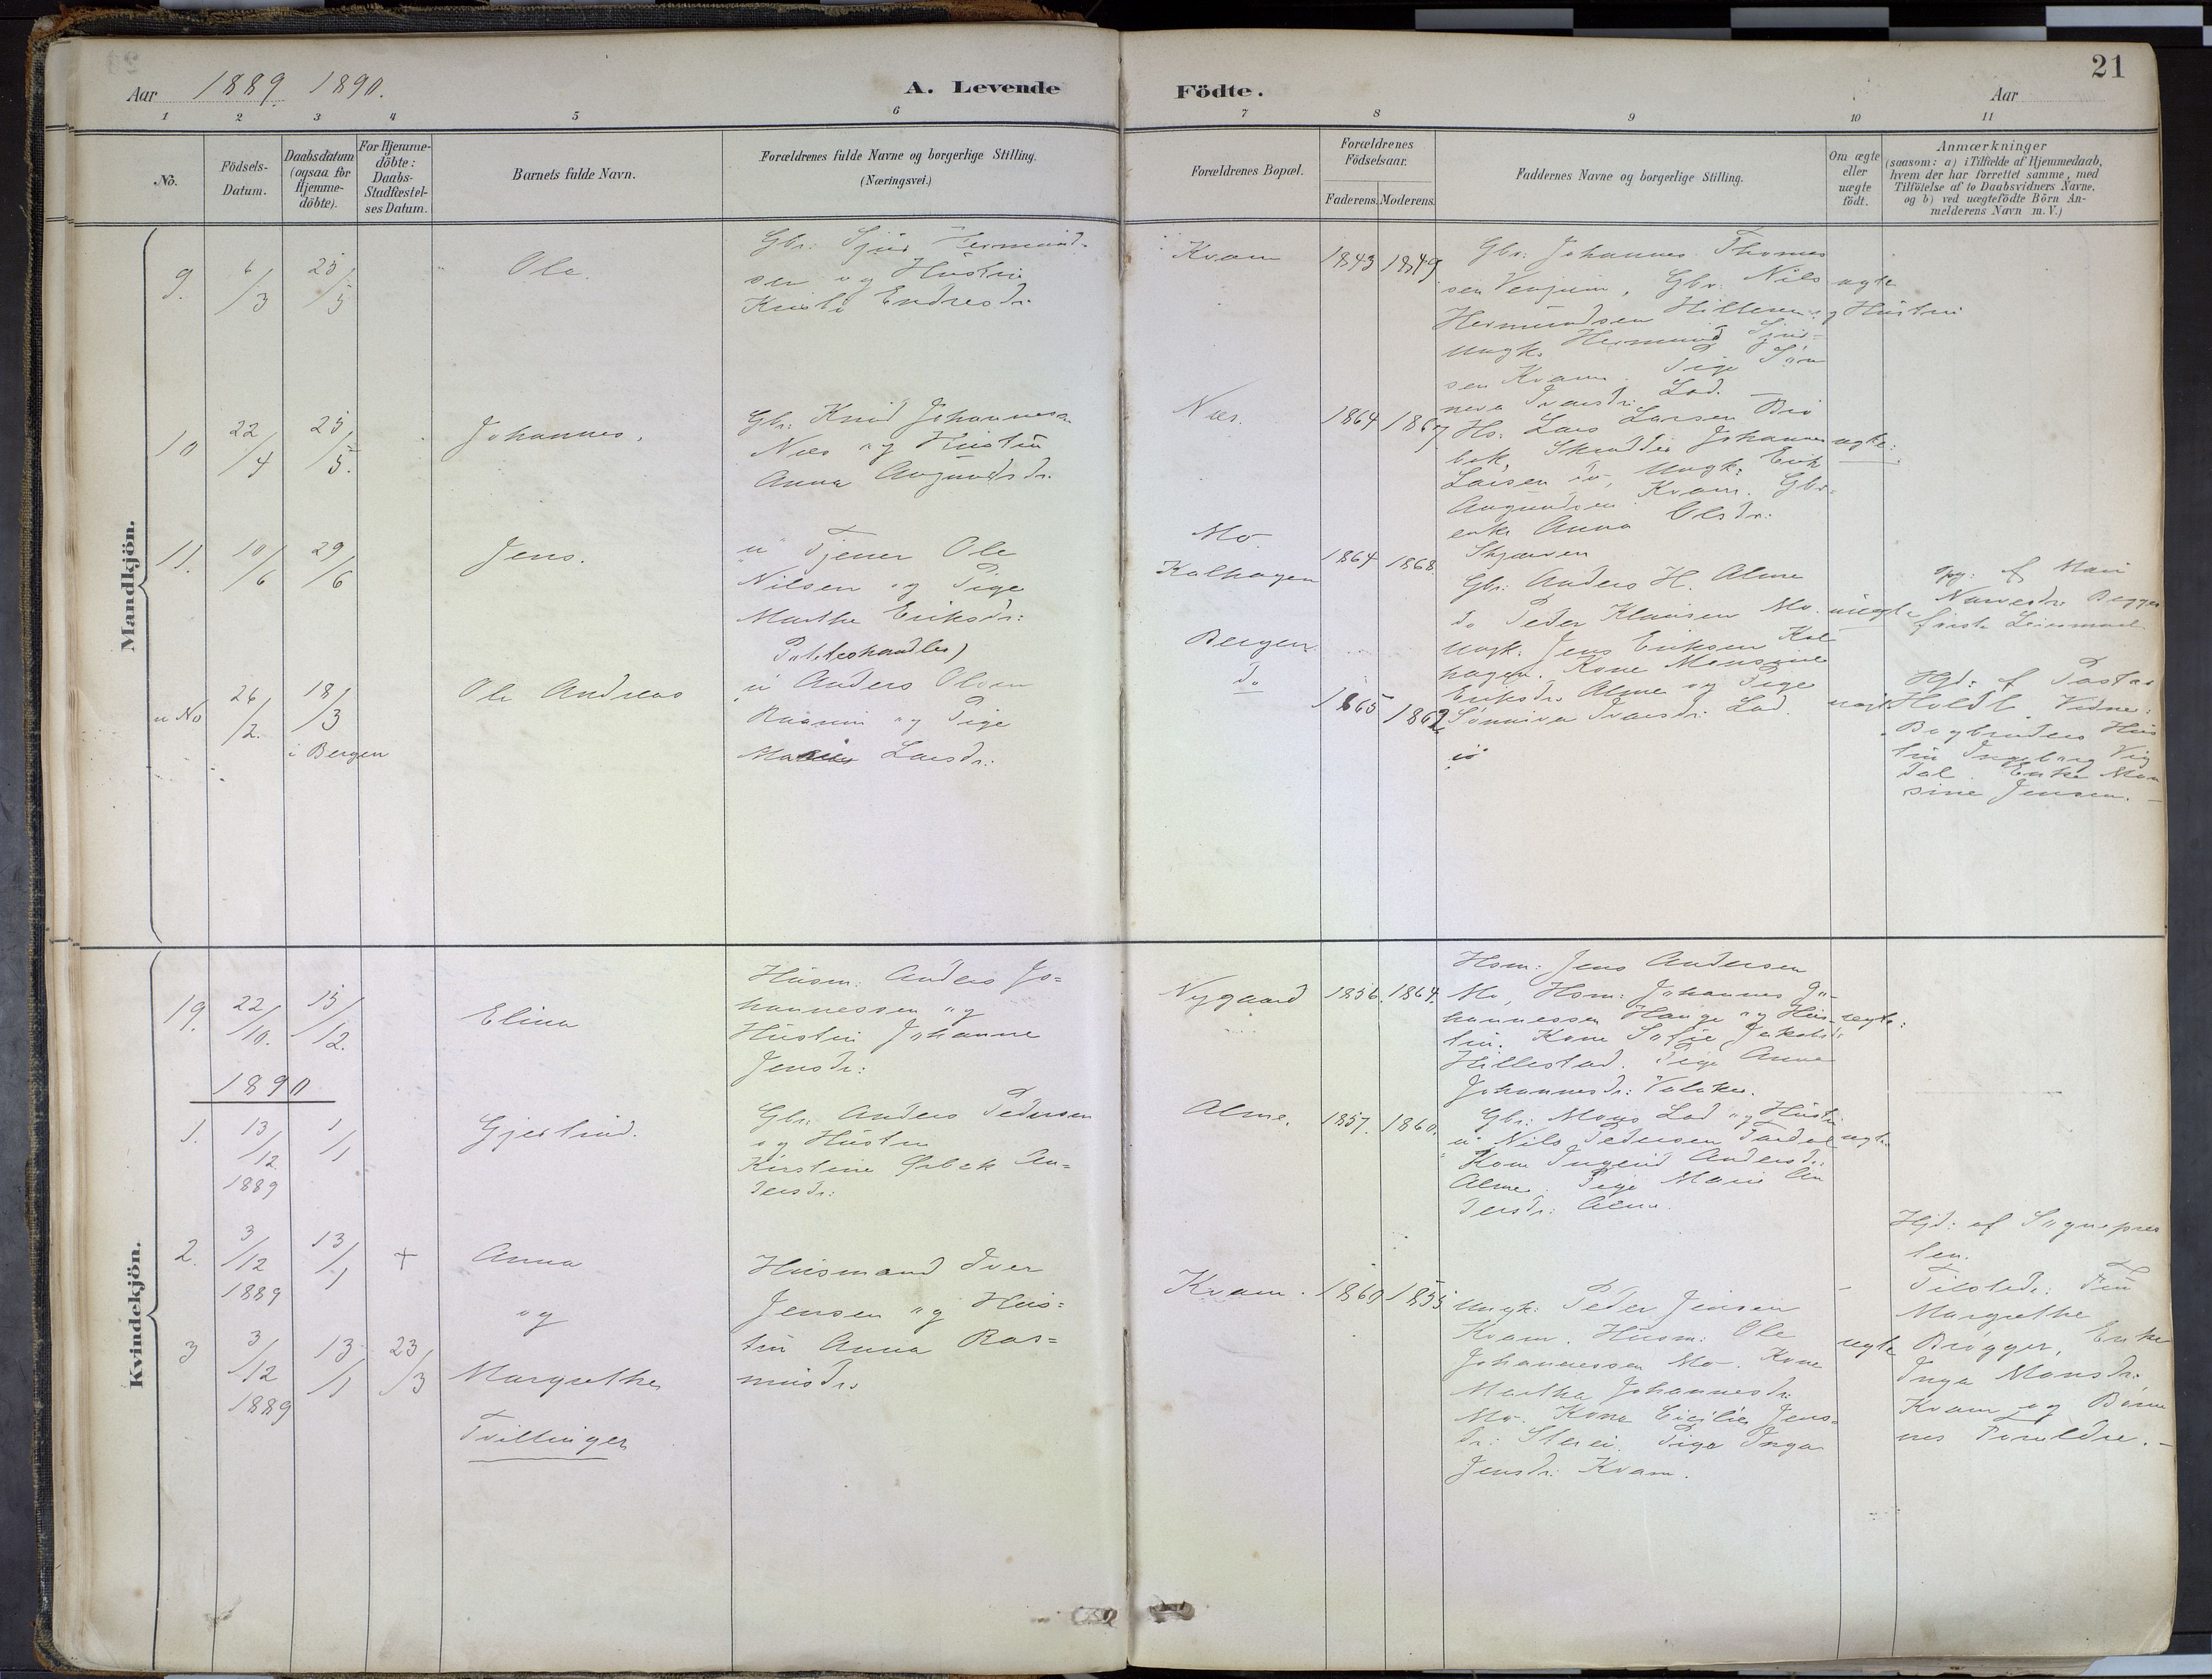 21
Aar 1889. 1890.
A. Levende Födte.
Aar
1 2 3 4 5 6 7 8 9 10 11
No.
Födsels-
Datum.
Daabsdatum
(ogsaa for
Hjemme-
döbte).
For Hjemme-
döbte:
Daabs-
Stadfæstel-
ses Datum.
Barnets fulde Navn.
Forældrenes fulde Navne og borgerlige Stilling.
(Næringsvei.)
Forældrenes Bopæl.
Forældrenes
Födselsaar.
Faderens. Moderens.
Faddernes Navne og borgerlige Stilling.
Om ægte
eller
uægte
födt.
Anmærkninger
(saasom: a) i Tilfælde af Hjemmedaab,
hvem der har forrettet samme, med
Tilföielse af to Daabsvidners Navne,
og b) ved uægtefödte Börn An-
melderens Navn m. V.)
Mandkjön.
9. 6/3 25/5
Ole.
Gbr. Sjur Hermund-
sen og Hustru
Kristi Endresdr.
Kvam
1843 1849
Gbr: Johannes Thomes
sen Venjum, Gbr. Nils
Hermundsen Hilleren og Hustru
Ungk. Hermund Sjur-
sen Kvam. Pige Syn
neva Iversdr. Lad.
ægte
10 22/4 25/5.
Johannes.
Gbr: Knud Johannesen
Næs og Hustru
Anna Augundsdr.
Næs.
1864 1867
Hs. Lars Larsen Bri
bok, Skrædder Johannes
Larsen do, Ungk: Erik
Augundsen Kvam. Gbr-
enke Anna Olsdr:
Skjerven
ægte:
11. 10/6 29/6
Jens.
u Tjener Ole
Nilsen og Pige
Marthe Eriksdr:
Mo
Kalhagen
1864 1868.
Gbr: Anders H. Alme
do Peder Klausen Mo.
Ungk: Jens Eriksen Kal
hagen. Kone Monsine
Eriksdr. Alme og Pige
Synneva Iversdr. Lad.
uægte
Opg: af Mari
u No 26/2. 18/3
i Bergen
Ole Andreas
Potteshandler)
u Anders Olsen
og Pige
Larsdr.
Bergen
do
1865 1862
uægte
Hjd: af Pastor
Holdt Vidne:
Bogbinders Hus
tru Ingeborg Vig
dal. Enke Mon
sine Jensen.
Kvindekjön.
19. 22/10. 15/12.
Elina
Husm. Anders Jo=
hannessen og
Hustru Johanne
Jensdr:
Nygaard
1856. 1864.
Hsm: Jens Andersen
Mo, Hsm: Johannes Jo-
hannessen Hauge og Hus-
tru. Kone Sofie Jakobsdr
Hillestad. Pige Anna
Johannesdr: Voloker.
ægte:
1890
1. 13/12 1889 1/1
Gjertrud.
Gbr. Anders Pedersen
og Hustru
Kirstine Orbek An=
dersdr:
Alme.
1857. 1860.
Gbr: Mons Lad og Hustru
u Nils Pedersen Tardal
Kone Ingerid Andersdr.
Alme. Pige Marie An
dersdr: Alme.
ægte
2. 3/12 1889 13/1 +
Anna
og
3 3/12 1889 13/1 23/3
Margrethe
Tvillinger
Husmand Iver
Jensen og Hus=
tru Anna Ras=
musdr.
Kvam.
1860 1855
Ungk: Peder Jensen
Kvam. Husm: Ole
Johannessen Mo. Kone
Martha Johannesdr.
Mo. Kone Cicilie Jens-
dr: Slerei. Pige Inga
Jensdr: Kvam.
ægte
Hjd: af Sognepres
ten.
Tilstede: Fru
Margrethe
Brøgger, Enke
Inga Monsdr.
Kvam og Børne
nes Foreldre.